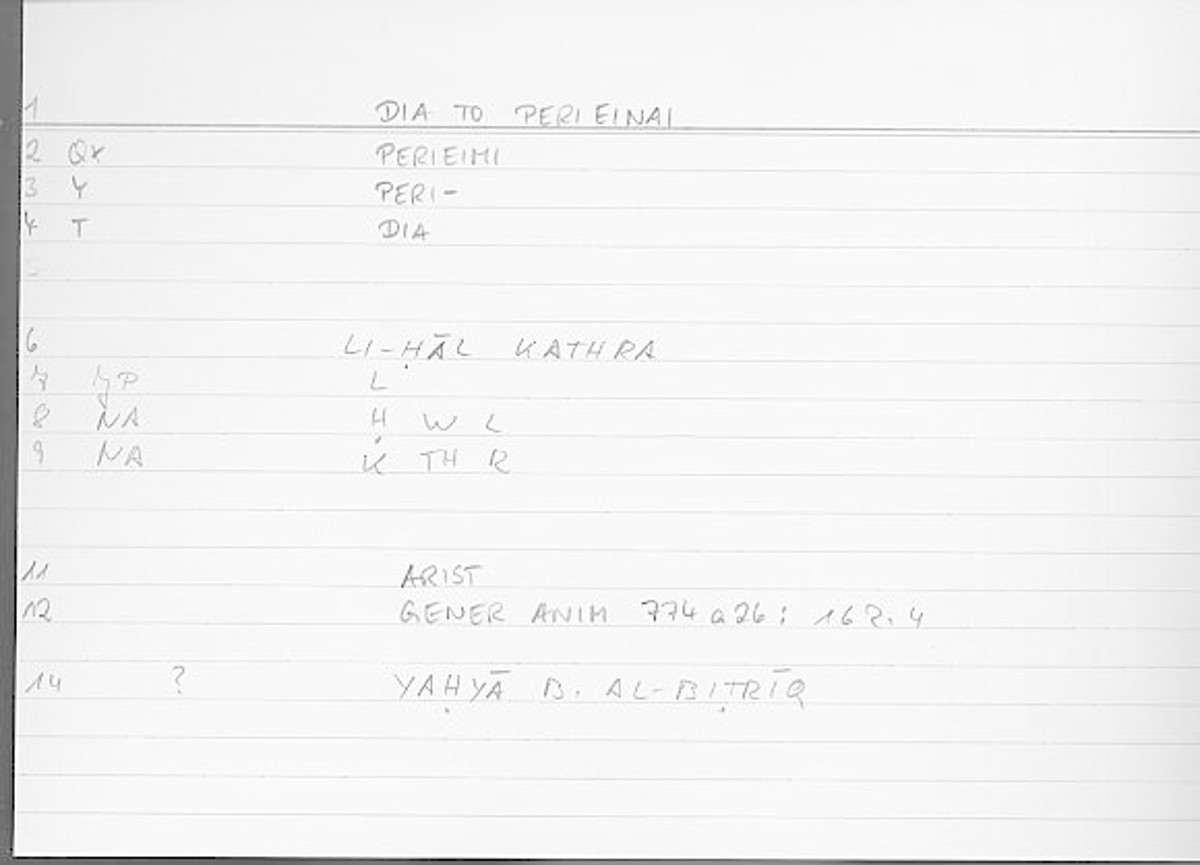 1 DIA TO PERIEINAI
2 Qx PERIEIMI
3 Y PERI-
4 T DIA
6 LI-ḤĀL KATHRA
7 L
8 NA Ḥ W L
9 NA K TH R
11 ARIST
12 GENER ANIM 774a26; 162.4
14 ? YAḤYĀ B. AL-BIṬRĪQ